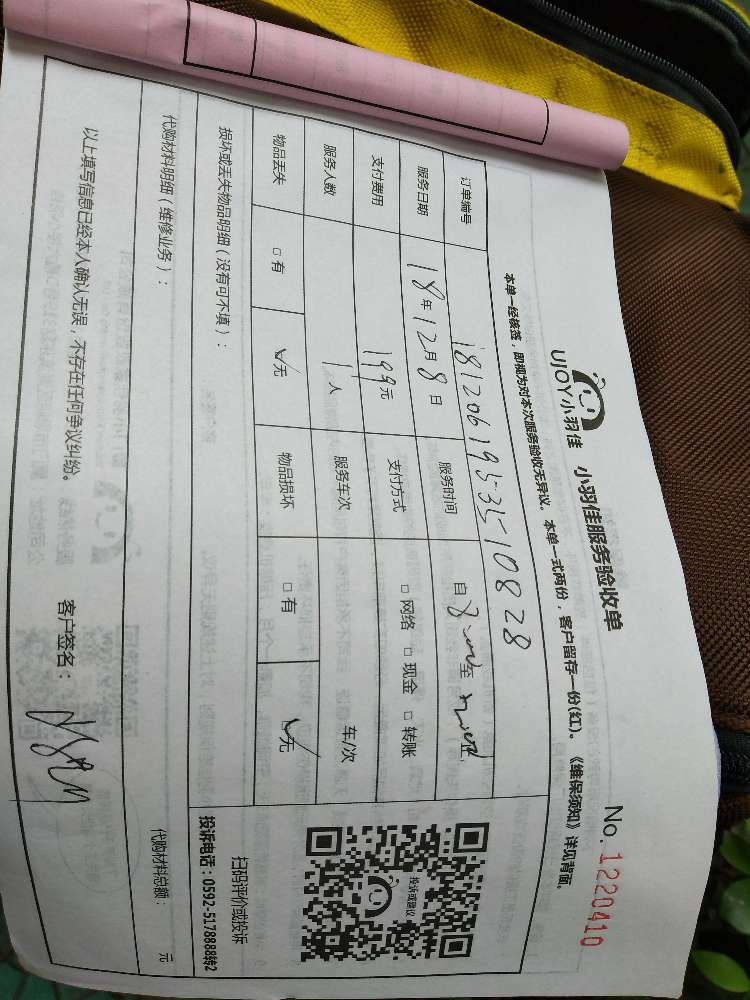 UJOY小羽佳 小羽佳服务验收单
No. 1220410
本单一经核签，即视为对本次服务验收无异议。本单一式两份，客户留存一份(红)。《维保须知》详见背面。
订单编号 1812061953510828
服务日期 18年12月8日 服务时间 自 至
支付费用 199元 支付方式 □网络 □现金 □转账
服务人数 1人 服务车次 车/次
物品丢失 □有 ☑无 物品损坏 □有 ☑无
投诉或建议
扫码评价或投诉
投诉电话：0592-5178888转2
损坏或丢失物品明细（没有可不填）：
代购材料明细（维修业务）：
代购材料总额： 元
以上填写信息已经本人确认无误，不存在任何争议纠纷。 客户签名：